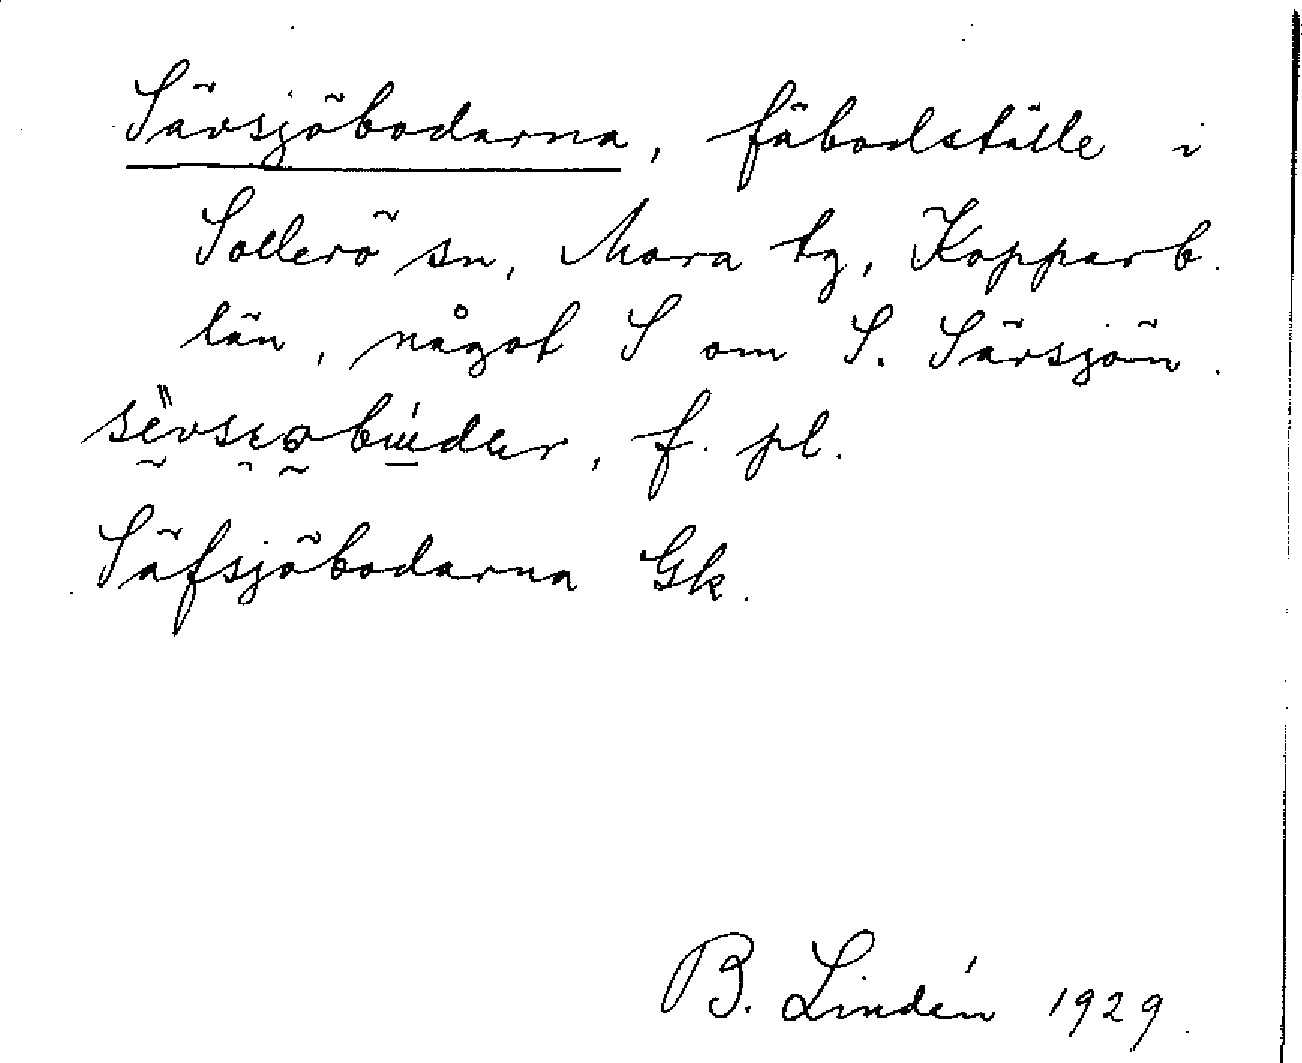 Sävsjöbodarna, fäbodställe i
Sollerö sn, Mora tg, Kopparb.
län, något S om S. Särsjön.
f. pl.
Säfsjöbodarna Gk.
B. Lindén 1929.